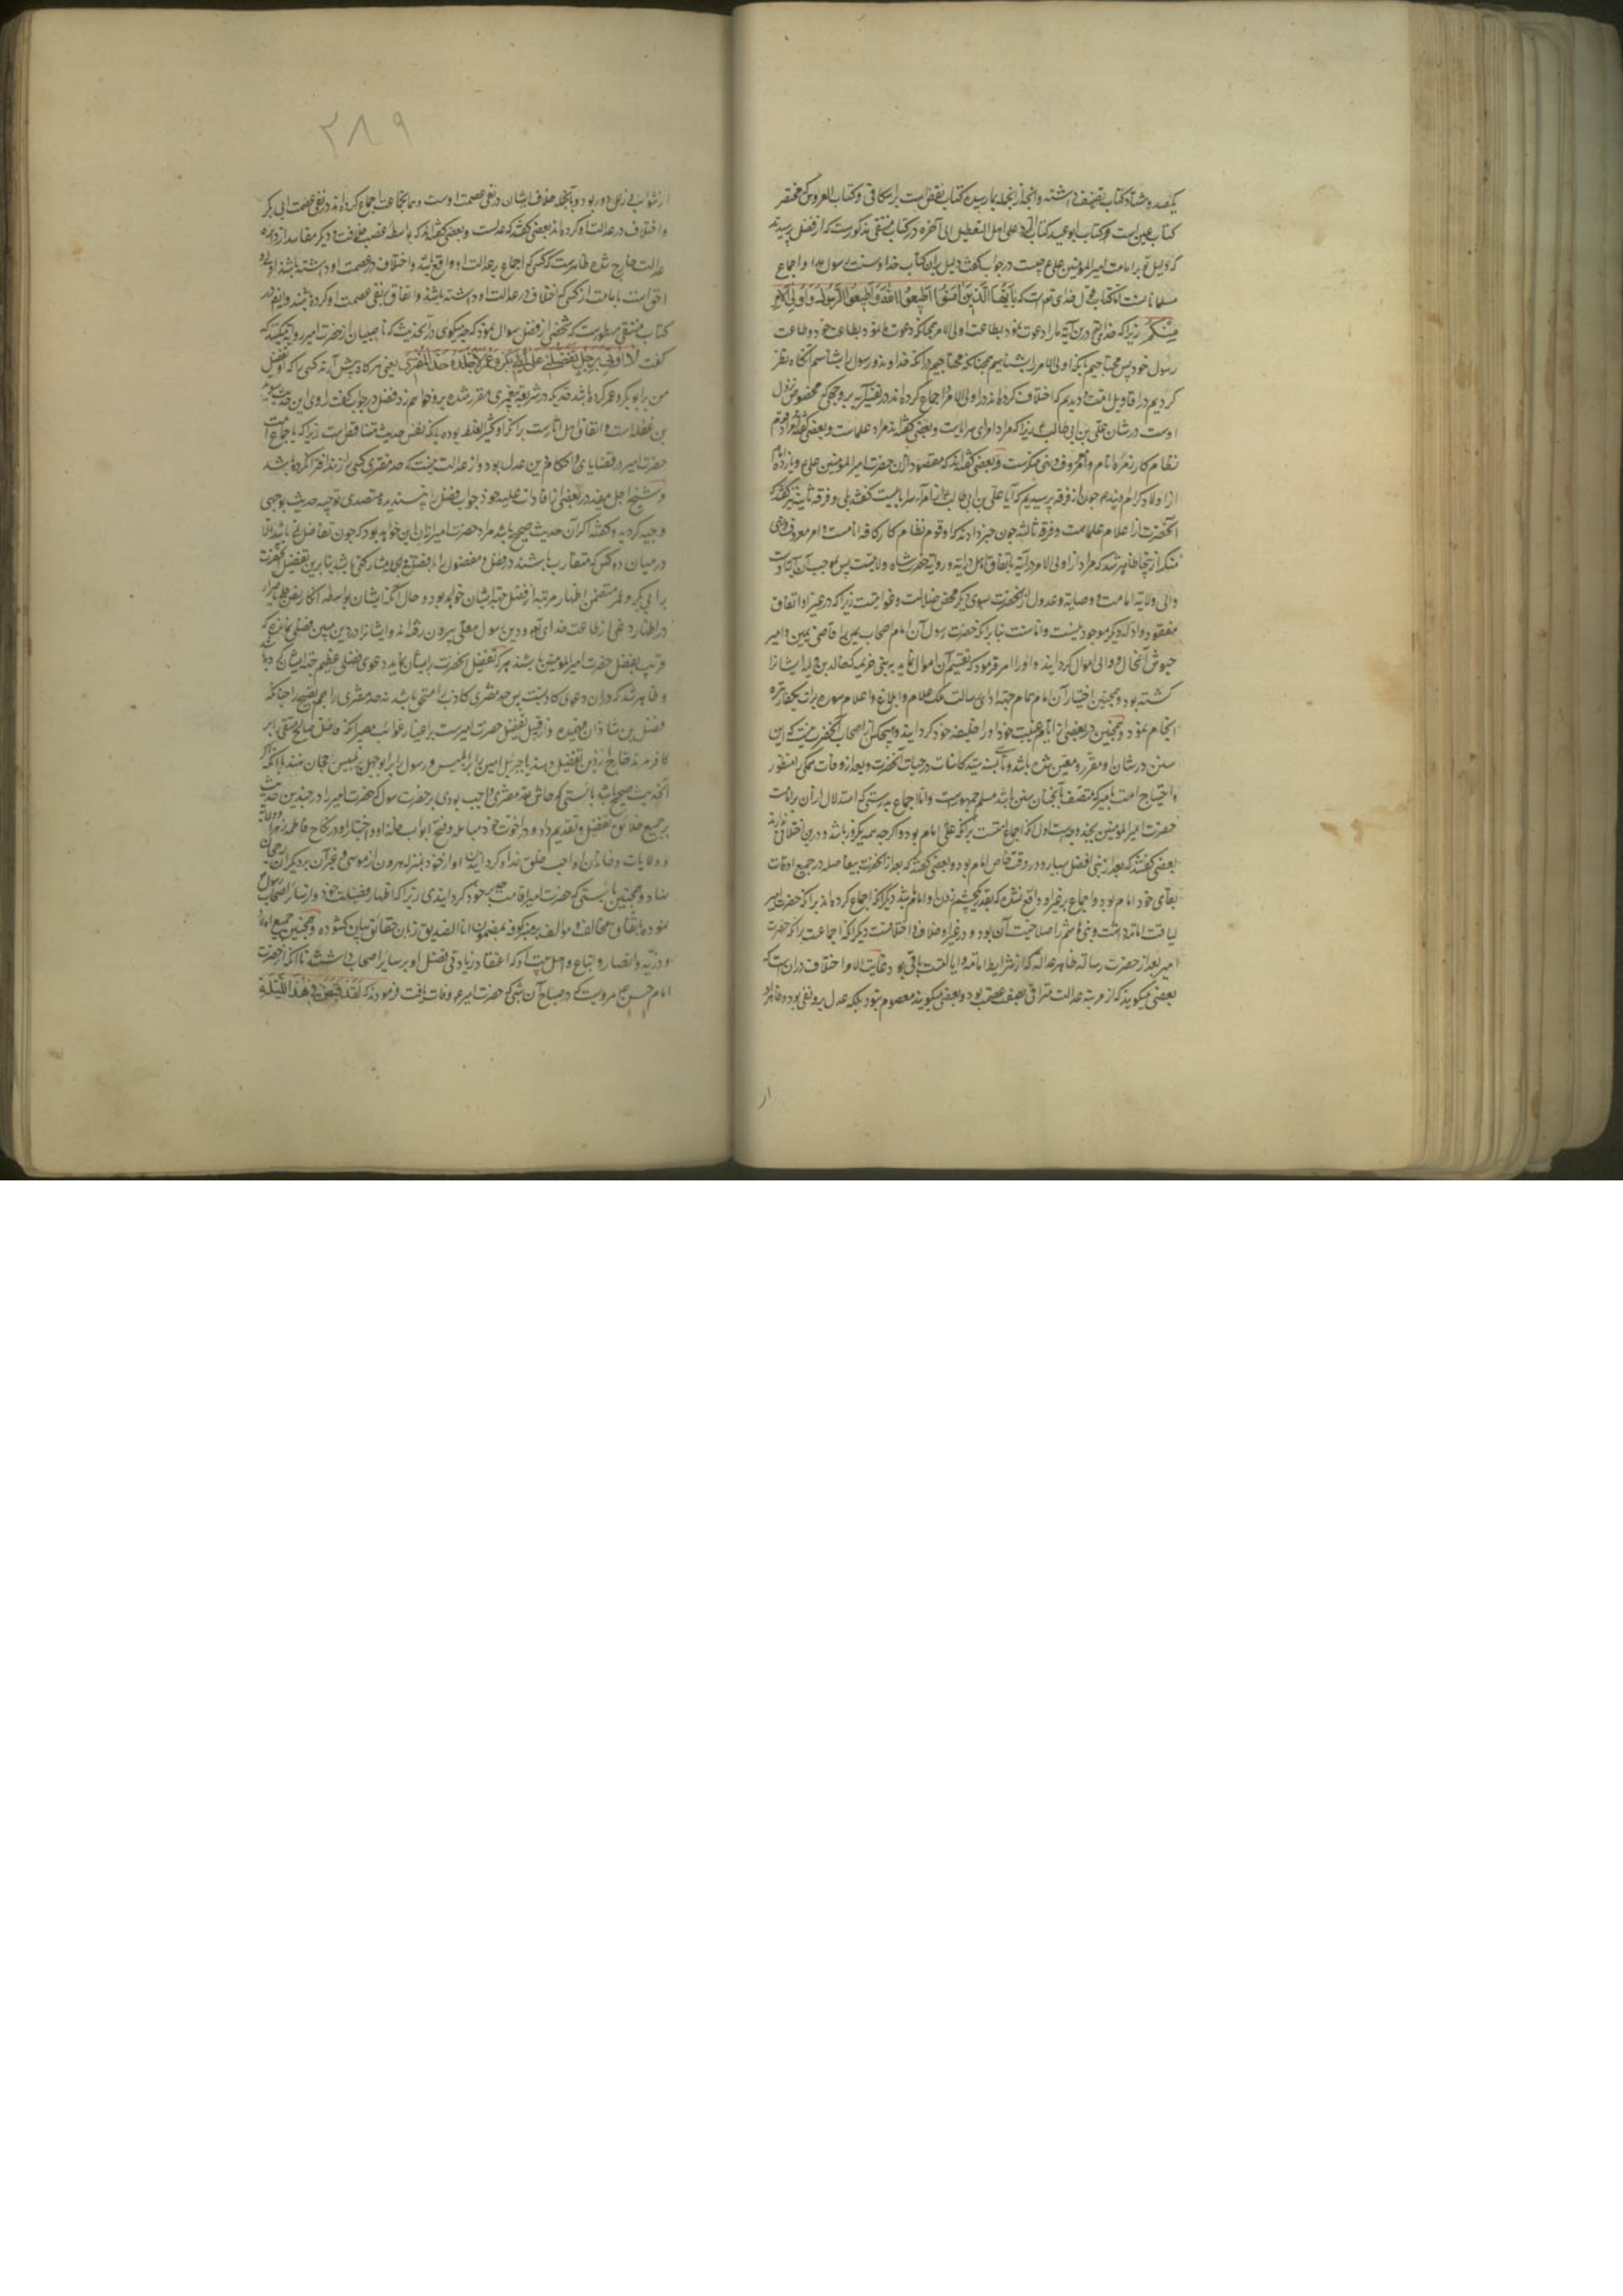 یکصد و هشتاد کتاب تصنیف داشته و آنچه از آنجمله بما رسیده کتاب نقض است بر اسکافی و کتاب العروس که مختصر
کتاب عین است و کتاب ابو عبید کتاب الرد علی اهل التعطیل الی آخره در کتاب منتقی مذکورست که از فضل پرسیدند
که دلیل تو بر امامت امیرالمؤمنین علی ع چیست در جواب گفت دلیل بر آن کتاب خدا و سنت رسول خدا و اجماع
مسلمانانست اما کتاب قول خدای تعالی است که یا ایها الذین آمنوا اطیعوا الله و اطیعوا الرسول و اولی الامر
منکم زیرا که خدای تعالی درین آیه ما را دعوت نمود بطاعت اولی الامر همچنانکه دعوت نمود بطاعت خود و طاعت
رسول خود پس محتاجیم بآنکه اولی الامر را بشناسیم همچنانکه محتاجیم بدانکه خدا و رسول را بشناسیم آنگاه نظر
کردیم در اقاویل امت و دیدیم که اختلاف کرده‌اند در اولی الامر و اجماع کرده‌اند در تفسیر آیه بر وجهی که مخصوص نزول
اوست در شان علی بن ابی طالب ع زیرا که مراد امرای سرایاست و بعضی گفته‌اند مراد علماست و بعضی گفته‌اند مراد قوام
نظام کار زمره انام و آمر معروف و نهی منکرست و بعضی گفته‌اند که مقصود از آن حضرت امیرالمؤمنین علی ع و یازده امام
از اولاد کرام اویند چون از فرقه پرسیدیم که آیا علی بن ابی طالب ع از امراء سرایا نیست گفتند بلی و فرقه ثانیه نیز گفتند که
آنحضرت از اعلام علماست و فرقه ثالثه چون خبر دادند که او قوام نظام کار کافه انامست و امر معروف و نهی
منکر از اینجا ظاهر شد که مراد از اولی الامر در آیه باتفاق اهل درایه و روایه حضرت شاه ولایتست پس بموجب آن آیه اوست
والی ولایه امامت و وصایه و عدول از آنحضرت بسوی دیگر محض ضلالت و غوایتست زیرا که در غیر او اتفاق
مفقود و آنکه دیگر موجود نیست و اما سنت بنا بر آنکه حضرت رسول آن امام اصحاب یمین را قاضی یمن و امیر
جیوش آنحال و والی اموال گردانید و او را امر فرمود که تقسیم آن اموال نماید بر بنی خزیمه که خالد بن ولید ایشانرا
کشته بود و همچنین اختیار آن امام همام جهت ادای رسالت ملک علام و ابلاغ و اعلام سوره برات
انجام نمود و همچنین در بعضی از ایام غیبت خود او را خلیفه خود گردانید و هیچکس از اصحاب آنحضرت نیست که این
سنن در شان او مقرر و معین شده باشد و سنت سید کاینات در حیات آنحضرت و بعد از وفات ممکن منظور
و احتیاج امت بامیری که متصف بآنچنان سنن باشد مسلم جمهورست و اما اجماع بدرستی که استدلال از آن بر امامت
حضرت امیرالمؤمنین بچند وجهست اول آنکه اجماع امتست بر آنکه علی امام بود و اگر چه همه یکروز باشد و درین اختلاف ندارند
بعضی گفتند که بعد از نبی افضل در وقت خاص امام بود و بعضی گفتند که بعد از آنحضرت بیفاصله در جمیع اوقات
بقای خود امام بود و اجماع بر غیر او واقع نشده که بقدر یکچشم زدن او امام باشد دیگر آنکه اجماع کرده‌اند بر آنکه حضرت امیر
لیاقت امامه داشت و بنی هاشم را صلاحیت آن بود و در غیر او خلاف و اختلافست دیگر آنکه اجماعست بر آنکه حضرت
امیر بعد از حضرت رسالة ظاهر عداله که از شرایط امامه و ایالتست باقی بود و غایت الامر اختلاف در آن است که
بعضی میگویند که از مرتبه عدالت مترقی بصفت عصمت بود و بعضی میگویند معصوم نبود بلکه عدل بر و تقی بود و ظاهر او
از
٢٨٩
از شوایب زلل دور بود و بالجمله خلاف ایشان در نفی عصمت اوست و همان جماعت اجماع کرده‌اند در نفی عصمت ابی بکر
و اختلاف در عدالت او کرده‌اند بعضی گفتند که عدلست و بعضی گفته‌اند که بواسطه غصب خلافت و دیگر مفاسد از دایره
عدالت خارج شده ظاهرست که کسی که اجماع بر عدالت او واقع باشد و اختلاف در عصمت او داشته باشند اولی و
احق است بامامت از کسی که اختلاف در عدالت او داشته باشند و اتفاق بنفی عصمت او کرده باشند و ایضا در
کتاب منتقی مسطورست که شخصی از فضل سوال نمود که چه میگوئی در آن حدیث که ناصبیان از حضرت امیر روایت میکنند که
گفت لا اوتی برجل یفضلنی علی ابی بکر و عمر الا جلدته حد المفتری یعنی هرگاه پیش آرند کسی را که او تفضیل
من بر ابو بکر و عمر کرده باشد حدی که در شریعت پیغمبری مقرر شده برو خواهم زد فضل در جواب گفت راوی این حدیث سوید
بن غفله است و اتفاق اهل آثارست بر آنکه او کثیر الغلط بوده با آنکه نفس حدیث متناقض است زیرا که باجماع امت
حضرت امیر در قضایای و احکام دین عدل بود و از عدالت نیست که حد مفتری کسی را زند که افترا نکرده باشد
و شیخ اجل مفید در بعضی از افادات علیه خود جواب فضل را پسندیده متصدی توجیه حدیث بوجهی
وجیه گردیده و گفته اگر آن حدیث صحیح باشد مراد حضرت امیر از آن این خواهد بود که چون تفاضل نمی‌باشد الا
در میان دو کس که متقارب باشند در فضل و مفضول را با افضل مشارکتی باشد بنابرین تفضیل آنحضرت
بر ابی بکر و عمر متضمن اظهار مرتبه از فضل جهت ایشان خواهد بود و حال آنکه ایشان بواسطه انکار نص
در اظهار از طاعت خدای تعالی و دین رسول معلی بیرون رفته‌اند و ایشانرا در دین مبین فضلی نمانده که
قریب بفضل حضرت امیرالمؤمنین باشند هر که تفضیل آنحضرت بر ایشان نماید دعوی فضلی عظیم جهت ایشان کرده باشد
و ظاهر شد که در آن دعوی کاذبست پس حد مفتری کاذب را مستحق باشد نه حد مفتری راجم بقبیح راجنانکه
فضل بن شاذان فهمیده و از قبیل تفضیل حضرت امیرست بر اغیار آنکه فاضل صالح متقی را بر
کافر مرتد خارج از دین تفضیل دهند یا جبرئیل امین را بر ابلیس و رسول را بر ابوجهل رجحان نهند با آنکه اگر
آنحدیث صحیح باشد بایستی که حاشا حد مفتری واجب بودی بر حضرت رسول که حضرت امیر را در چندین حدیث
بر جمیع خلایق تفضیل و تقدیم داد و در اخوت خود و مباهله و فتح ابواب خانه او و اختیار او در نکاح فاطمه زهرا
و ولایات و خاندان او احب خلق خدا و گردانیدن او از خود بمنزله هرون از موسی و غیر آن بر دیگران رجحان
نهاد و همچنین بایستی که حضرت امیر اقامت حد بر خود گردانیدی زیرا که اظهار فضیلت خود از سایر اصحاب رسول
نموده باتفاق مخالف و موالف بر منبر کوفه بمضمون انا الصدیق زبان حقایق بیان گشوده و همچنین جمیع اولاد
و ذریه و انصار و اتباع و اهل بیت او که اعتقاد زیادتی فضل او بر سایر اصحاب داشتند تا آنکه از حضرت
امام حسن ع مرویست که در صباح آن شبی که حضرت امیر ع وفات یافت فرمودند که لقد قبض فی هذا اللیلة